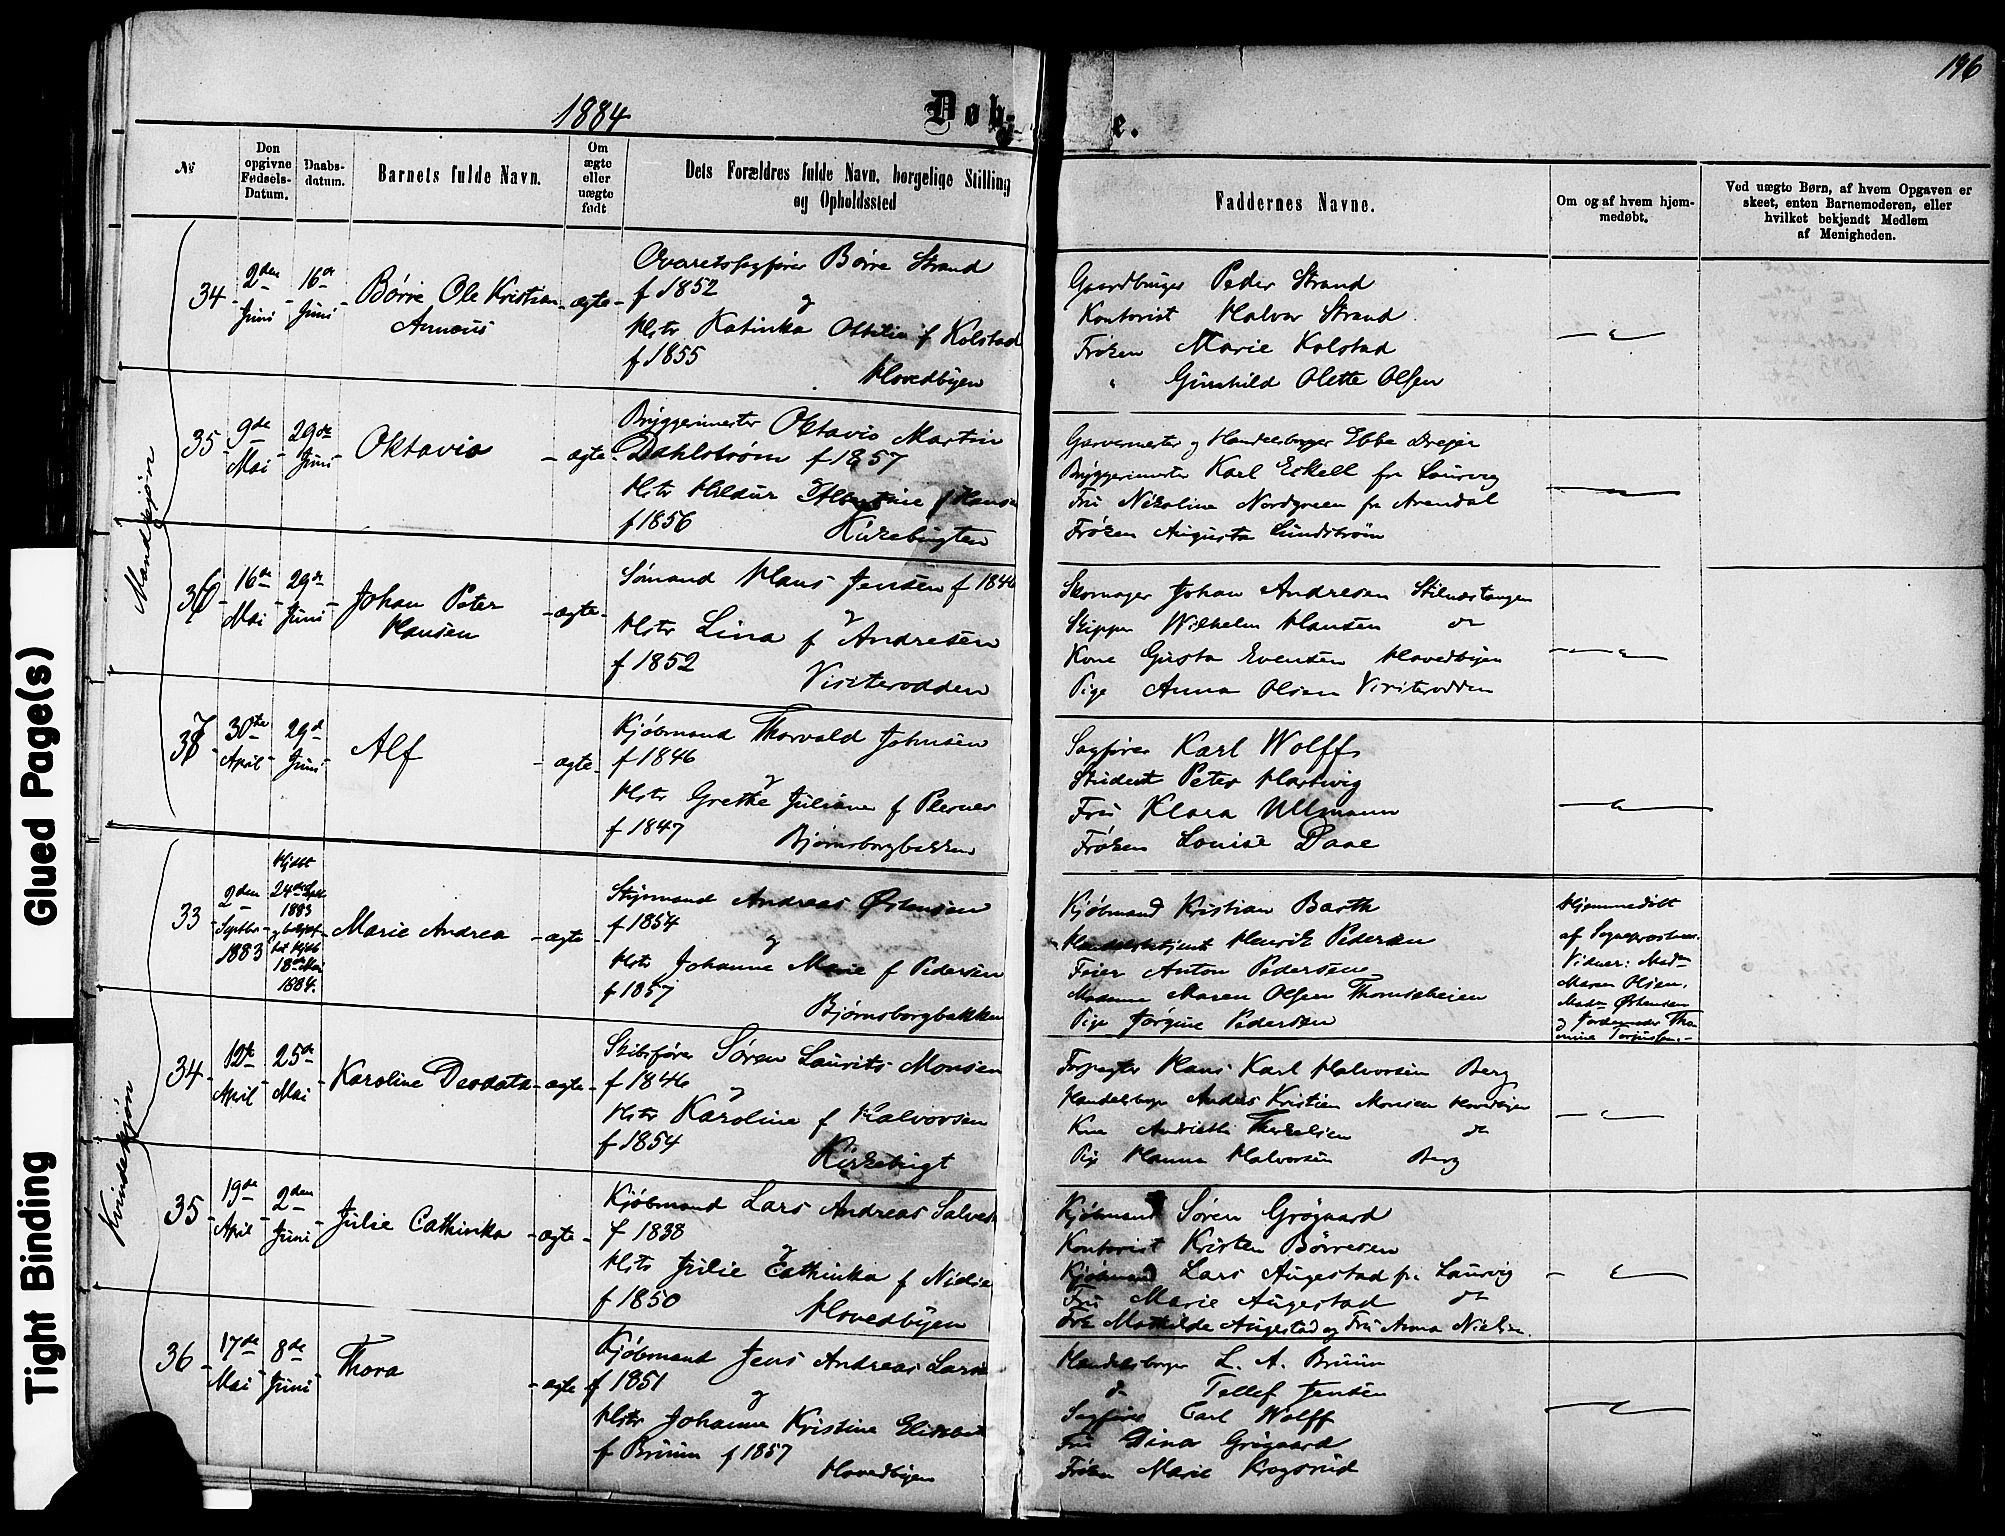 196
1884
Døb- e.
№
Den opgivne Fødsels-Datum.
Daabs-datum.
Barnets fulde Navn.
Om ægte eller uægte født
Dets Forældres fulde Navn, borgelige Stilling og Opholdssted
Faddernes Navne.
Om og af hvem hjem-medøbt.
Ved uægte Børn, af hvem Opgaven er skeet, enten Barnemoderen, eller hvilket bekjendt Medlem af Menigheden.
Mandkjøn
34 2den Juni 16de Juni Børre Ole Kristian Annæus ægte
Overetssagfører Børre Strand
f 1852 og
Hstr Katinka Ottilia f Kolstad
f 1855
Hovedbyen
Gaardbruger Peder Strand
Kontorist Halvor Strand
Frøken Marie Kolstad
" Gunhild Olette Olsen
35 9de Mai 29de Juni Oktavio ægte
Bryggerimester Oktavio Martin
Dahlstrøm f 1857
Hstr Hildur
f 1856
Kirkebugten
Garvermester og Handelsborger Ebbe Drejer
Bryggerimester Karl Eskell fra Laurvig
Fru Nikoline Nordgreen fra Arendal
Frøken Augusta Lundstrøm
36 16de Mai 29de Juni Johan Peter Hansen ægte
Sømand Hans Jensen f 1846
og
Hstr Lina f Andresen
f 1852
Visiterodden
Skomager Johan Andresen Stilnæstangen
Skipper Wilhelm Hansen do
Kone Gusta Evensen Hovedbyen
Pige Anna Olsen Visiterodden
37 30te April 29de Juni Alf ægte
Kjøbmand Thorvald Johnsen
f 1846
og
Hstr Grethe Juliane f Plerner
f 1847
Bjørnsborgbakken
Sagfører Karl Wolff
Student Peter Hartwig
Fru Klara Ullmann
Frøken Louise Daae
Kvindekjøn
33 2den Septbr 1883 Hjdbt 24de Sept 1883 18de Mai 1884. Marie Andrea ægte
Styrmand Andreas Østensen
f 1854
og
Hstr Johanne Marie f Pedersen
f 1857
Bjørnsborgbakken
Kjøbmand Kristian Barth
Handelsbetjent Henrik Pedersen
Feier Anton Pedersen
Madame Maren Olsen Thomesheien
Pige Jørgine Pedersen
Hjemmedøbt
af Sogneprosten.
Vidner: Madm
Maren Olsen,
Madm Østensen
og Jordemoder Tho
mine Torjusen.
34 12te April 25de Mai Karoline Deodata ægte
Skibsfører Søren Laurits Monsen
f 1846 og
Hstr Karoline f Halvorsen
f 1854
Kirkebugt
Forpagter Hans Karl Halvorsen Berg
Handelsborger Anders Kristien Monsen Hovedbyen
Kone Andrette Therkelsen do
Pige Hanna Halvorsen Berg
35 19de April 2den Juni Julie Cathinka ægte
Kjøbmand Lars Andreas Salves
f 1838
og
Hstr Julie Cathinka f Nielse
f 1850
Hovedbyen
Kjøbmand Søren Grøgaard
Kontorist Kristen Børresen
Kjøbmand Lars Augestad fra Laurvig
Fru Marie Augestad do
Frk Mathilde Augestad og Fru Anna Nielsen.
36 17de Mai 8de Juni Thora ægte
Kjøbmand Jens Andreas Larse
f 1851
og
Hstr Johanne Kristine Elisabet
f Bruun f 1857
Hovedbyen
Handelsborger L. A. Bruun
do Tellef Jensen
Sagfører Carl Wolff
Fru Dina Grøgaard
Frøken Marie Krogsrud
Glued Page(s)
Tight Binding